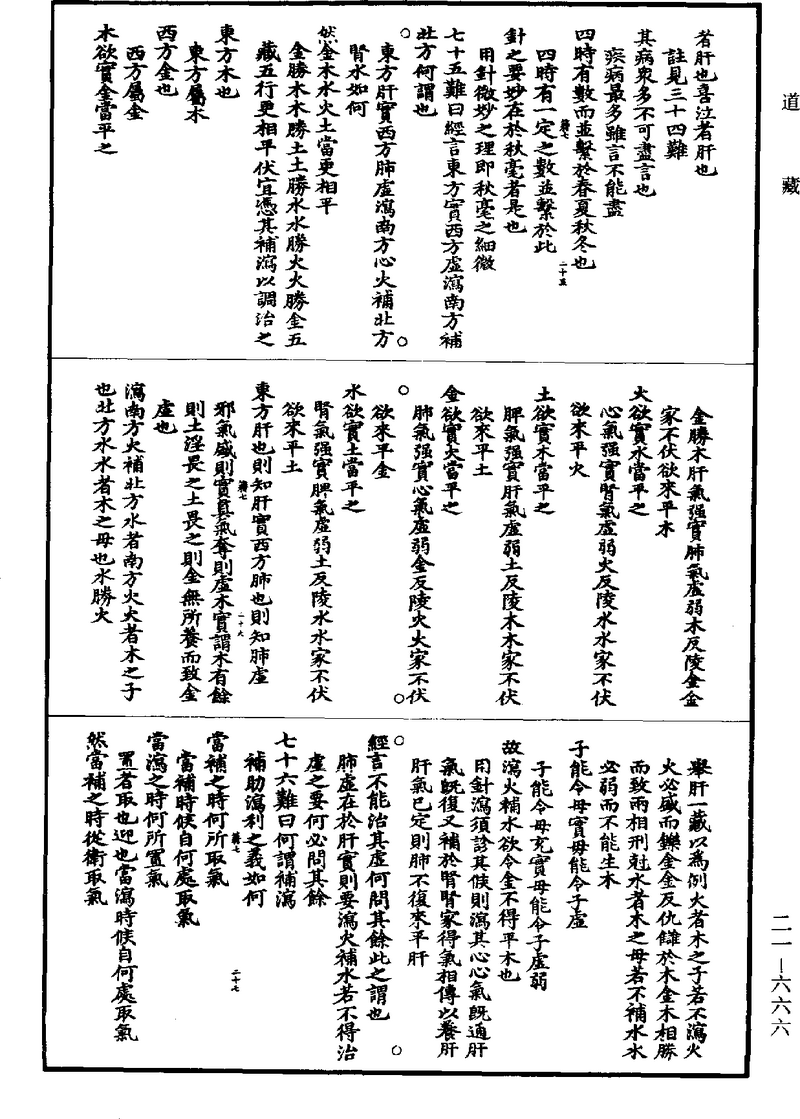 道藏
者肝也喜泣者肝也
註見三十四難
其病衆多不可盡言也
疾病最多雖言不能盡
四時有數而並繫於春夏秋冬也
四時有一定之數並繫於此
二十五
針之要妙在於秋毫者是也
用針微妙之理即秋毫之細微
七十五難曰經言東方實西方虛瀉南方補
北方何謂也
東方肝實西方肺虛瀉南方心火補北方
腎水如何
然金木水火土當更相平
金勝木木勝土土勝水水勝火火勝金五
藏五行更相平伏宜憑其補瀉以調治之
東方木也
東方屬木
西方金也
西方屬金
木欲實金當平之
金勝木肝氣强實肺氣虛弱木反陵金金
家不伏欲來平木
火欲實水當平之
心氣强實腎氣虛弱火反陵水水家不伏
欲來平火
土欲實木當平之
脾氣强實肝氣虛弱土反陵木木家不伏
欲來平土
金欲實火當平之
肺氣强實心氣虛弱金反陵火火家不伏
欲來平金
水欲實土當平之
腎氣强實脾氣虛弱土反陵水水家不伏
欲來平土
東方肝也則知肝實西方肺也則知肺虛
二十六
邪氣盛則實真氣奪則虛木實謂木有餘
則土淫畏之土畏之則金無所養而致金
虛也
瀉南方火補北方水者南方火火者木之子
也北方水水者木之母也水勝火
舉肝一藏以為例火者木之子若不瀉火
火必盛而鑠金金反仇讎於木金木相勝
而致兩相刑尅水者木之母若不補水水
必弱而不能生木
子能令母實母能令子虛
子能令母充實母能令子虛弱
故瀉火補水欲令金不得平木也
用針瀉須診其候則瀉其心心氣既通肝
氣既復又補於腎腎家得氣相傳以養肝
肝氣已定則肺不復來平肝
經言不能治其虛何問其餘此之謂也
肺虛在於肝實則要瀉火補水若不得治
虛之要何必問其餘
七十六難曰何謂補瀉
補助瀉利之義如何
二十七
當補之時何所取氣
當補時候自何處取氣
當瀉之時何所置氣
置者取也迎也當瀉時候自何處取氣
然當補之時從衛取氣
二一—六六六